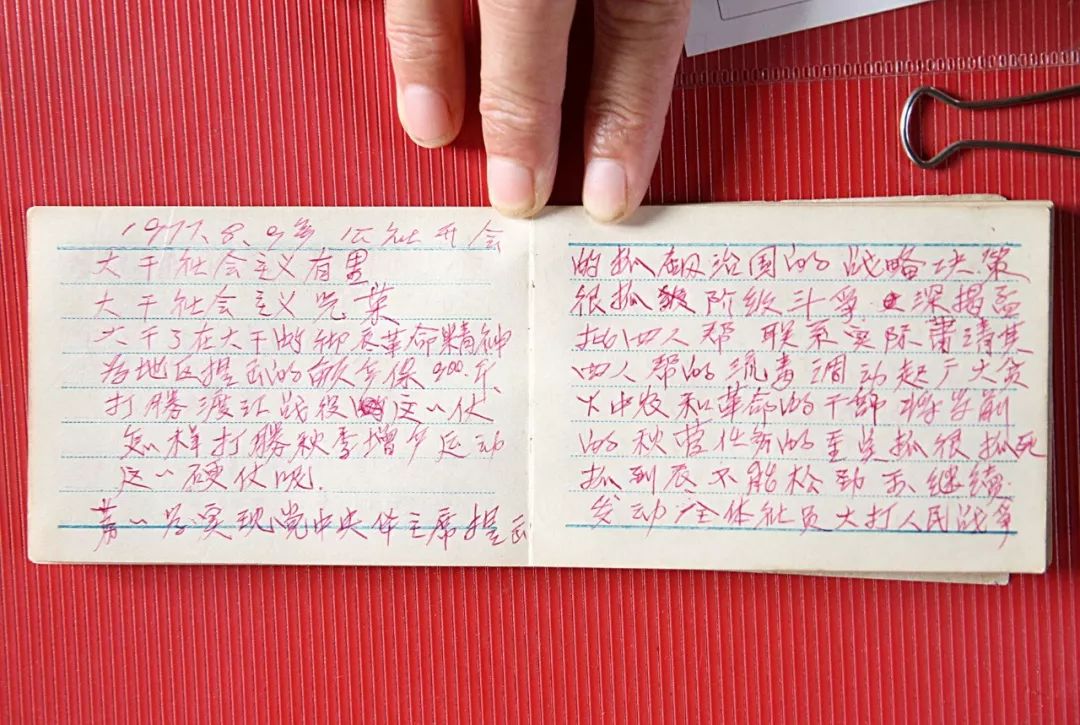 1977.8.9号 公社开会
大干社会主义有里
大干社会主义光荣
大干了在大干的革命精神
为地区提出的亩产保900斤
打勝渡江战役 这一仗
怎样打勝秋季增产运动
这一硬仗呢.
第一 实现党中央华主席提出
的抓纲治国的战略决策
很抓 阶级斗争 深揭孟
批四人帮 联系实际肃清其
四人帮的流毒调动起广大贫
下中农和革命的干部 将当前
的秋营任务的重点抓很抓死
抓到底不能松劲 继续
发动全体社员大打人民战争